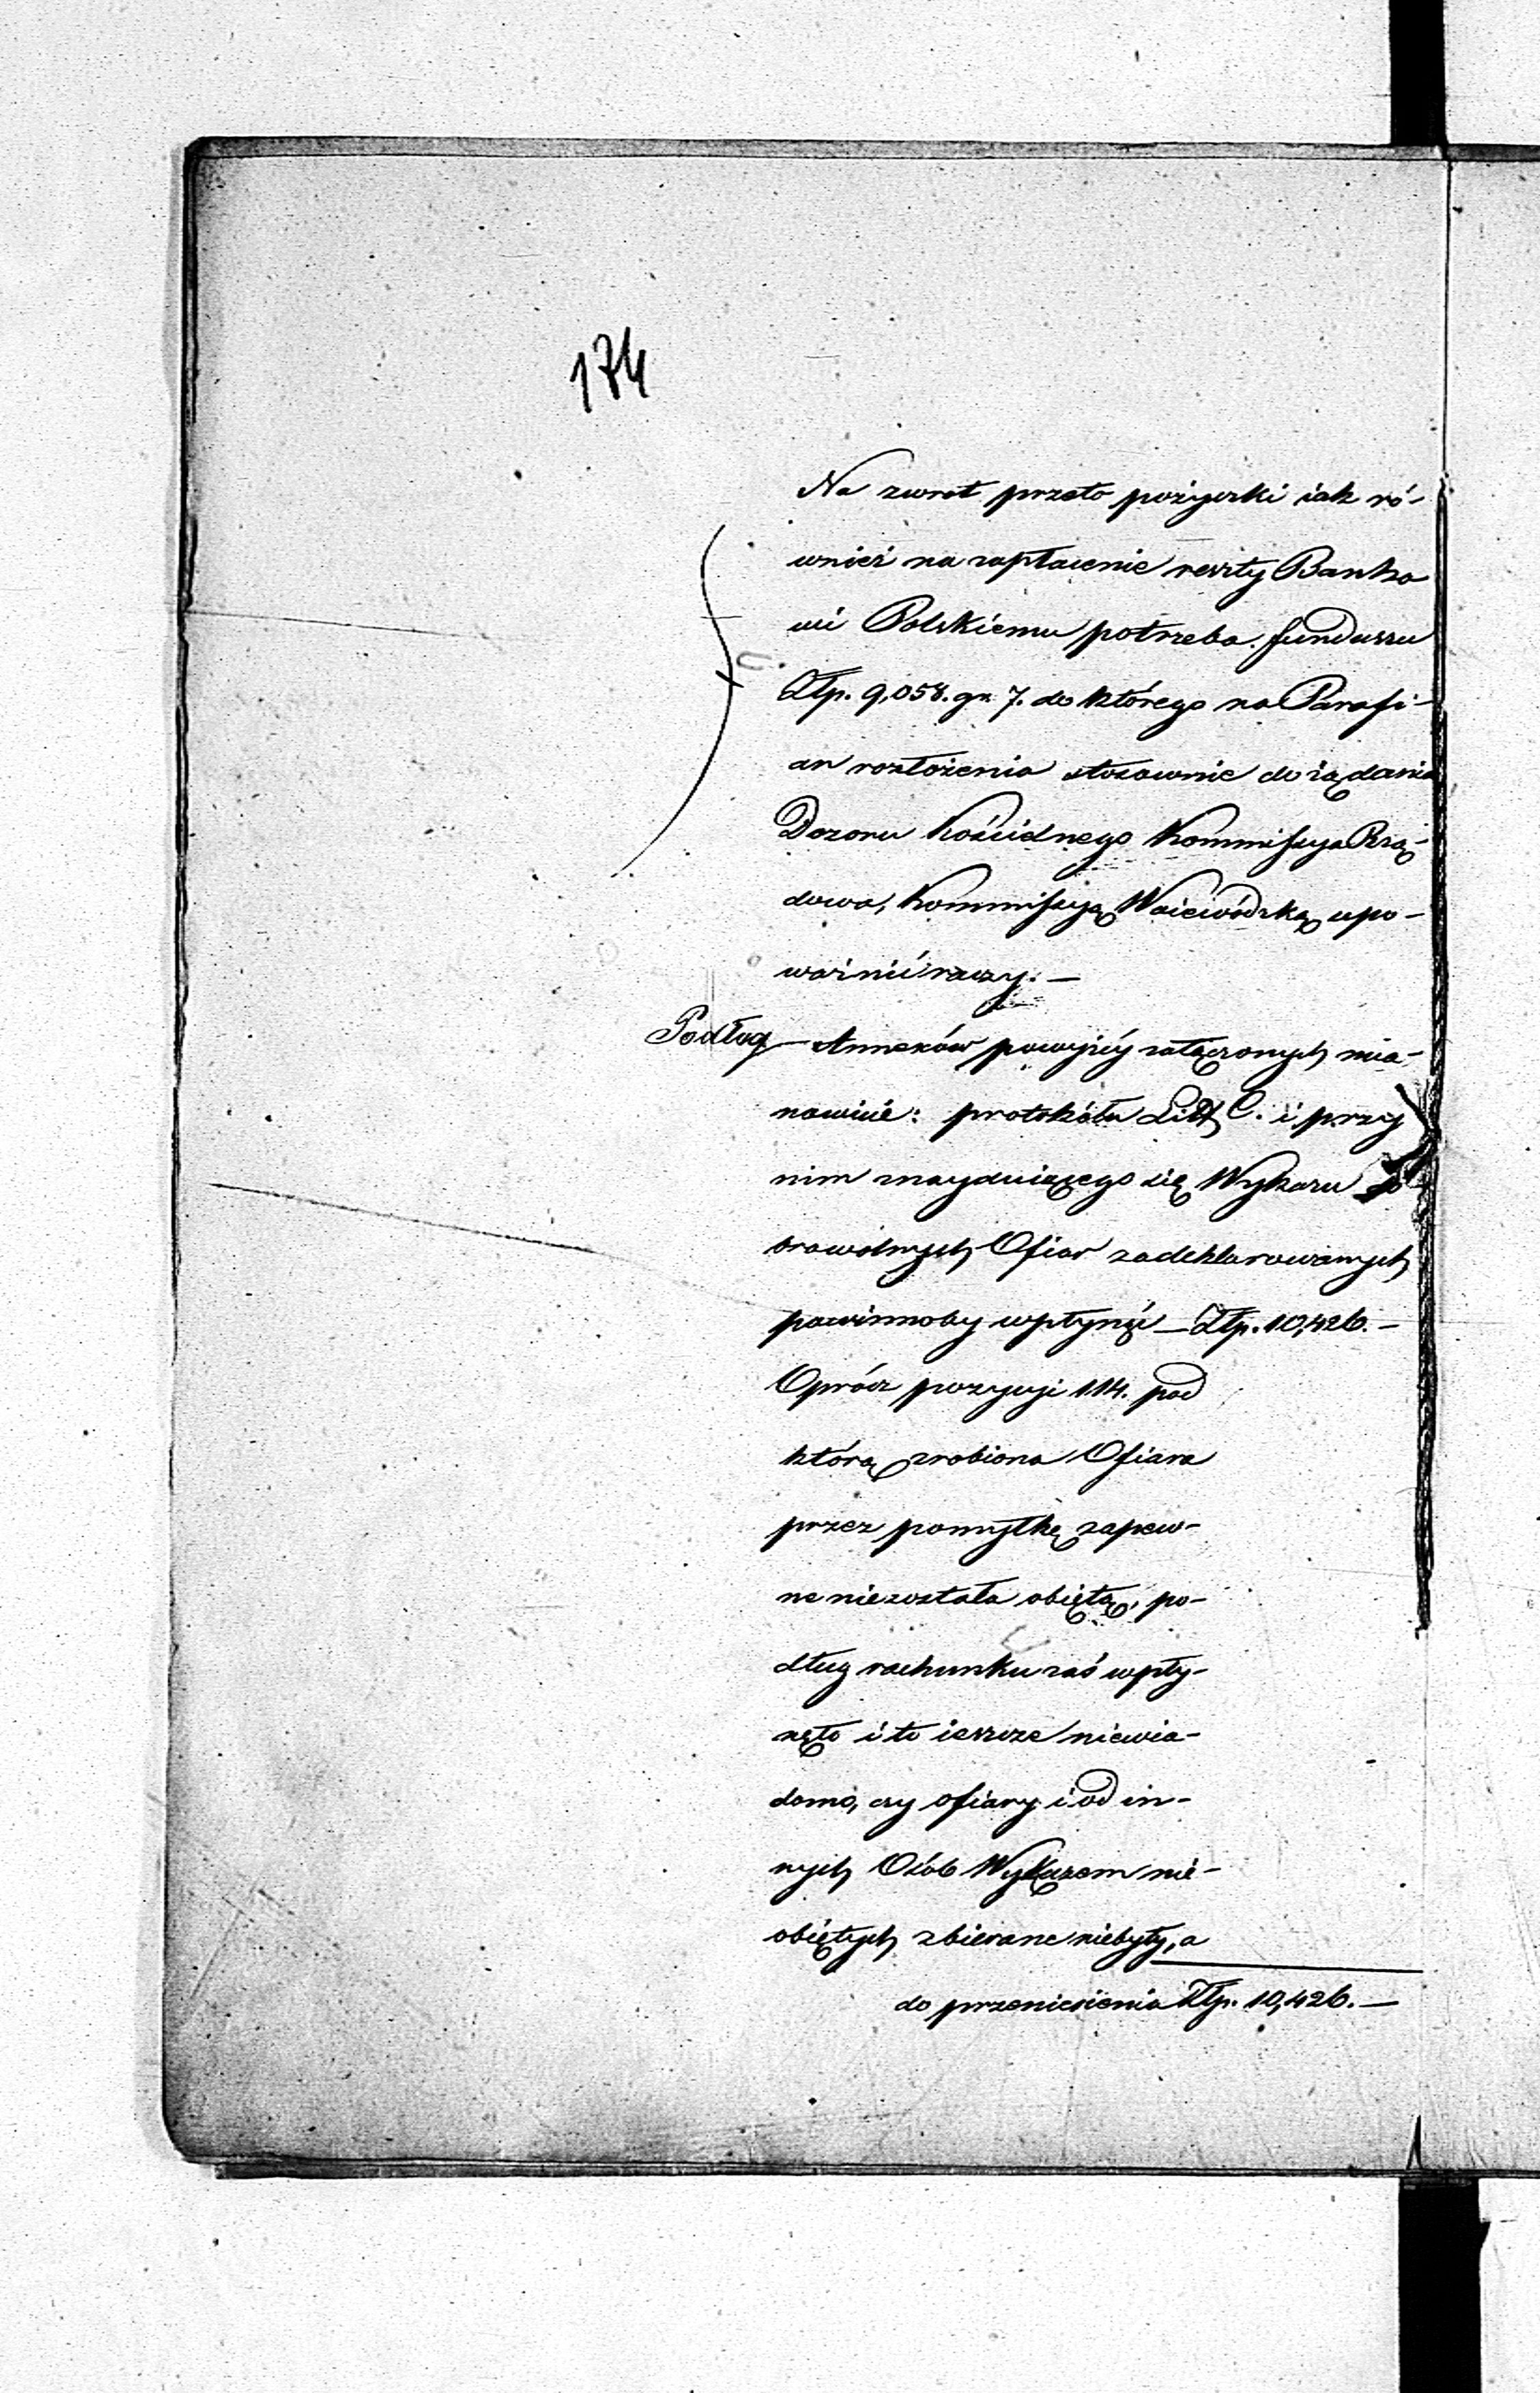 174
Na zwrot przeto pożyczki iak ró-
wnież na zapłacenie reszty Banko
wi Polskiemu potrzeba funduszu
Złp. 9,058. gr. 7. do którego na Parafi-
an rozłożenia stosownie do żądania
Dozoru Kościelnego Kommissya Rzą-
dowa, Kommissyą Woiewódzką upo-
ważnić raczy. —
Podług Annexów powyżéy załączonych mia-
nowicie: protokółu Litt C. i przy
nim znayduiącego się Wykazu do-
browolnych Ofiar zadeklarowanych
powinnoby wpłynąć — Złp. 10,426. —
Oprócz pozycyi 114. pod
którą zrobiona Ofiara
przez pomyłkę zapew-
ne niezostała obiętą, po-
dług rachunku zaś wpły-
nęło i to ieszcze niewia-
domo, czy ofiary i od in-
nych Osób Wykazem nie-
obiętych zbierane niebyły, a
do przeniesienia Złp. 10,426. —